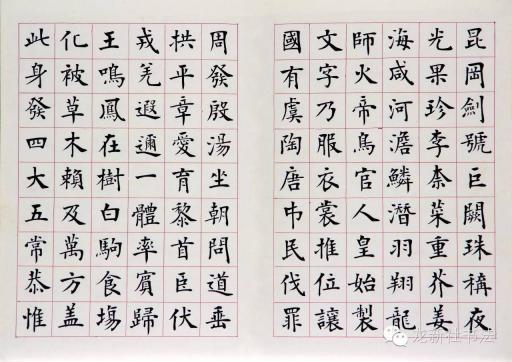 昆岡劍號巨闕珠稱夜
光果珍李柰菜重芥姜
海咸河澹鱗潛羽翔龍
師火帝鳥官人皇始製
文字乃服衣裳推位讓
國有虞陶唐吊民伐罪
周發殷湯坐朝問道垂
拱平章愛育黎首臣伏
戎羌遐邇一體率賓歸
王鳴鳳在樹白駒食塲
化被草木賴及萬方盖
此身發四大五常恭惟
龙新仕书法